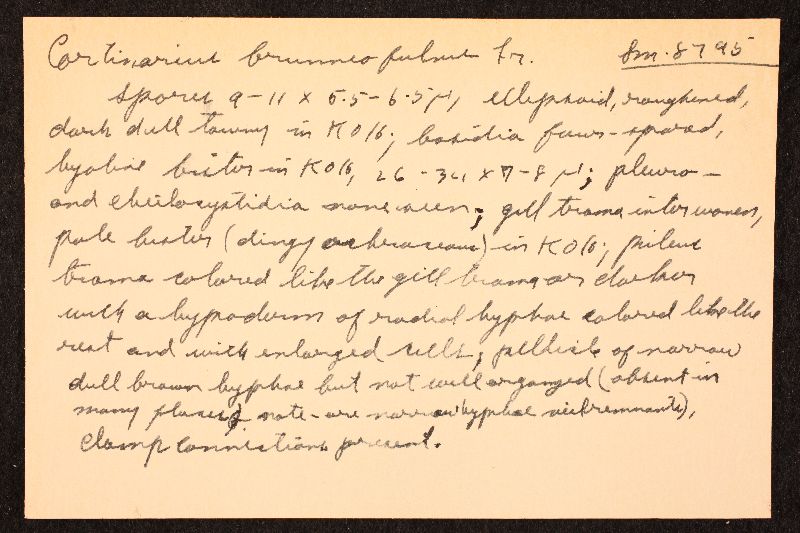 Cortinarius brunneofulvus Fr. Sm. 8795
Spores 9-11 x 5.5-6.5 μ, ellipsoid, roughened,
dark dull tawny in KOH; basidia four-spored,
hyaline in KOH, 26-34 x 7-8 μ; pleuro-
and cheilocystidia none seen; gill trama interwoven,
pale bister (dingy ochraceous) in KOH; pileus
trama colored like the gill trama or darker
with a hypoderm of radial hyphae colored like the
rest and with enlarged cells; pellicle of narrow
dull brown hyphae but not well organized (absent in
many places; note - are narrow hyphae veil remnants),
clamp connections present.